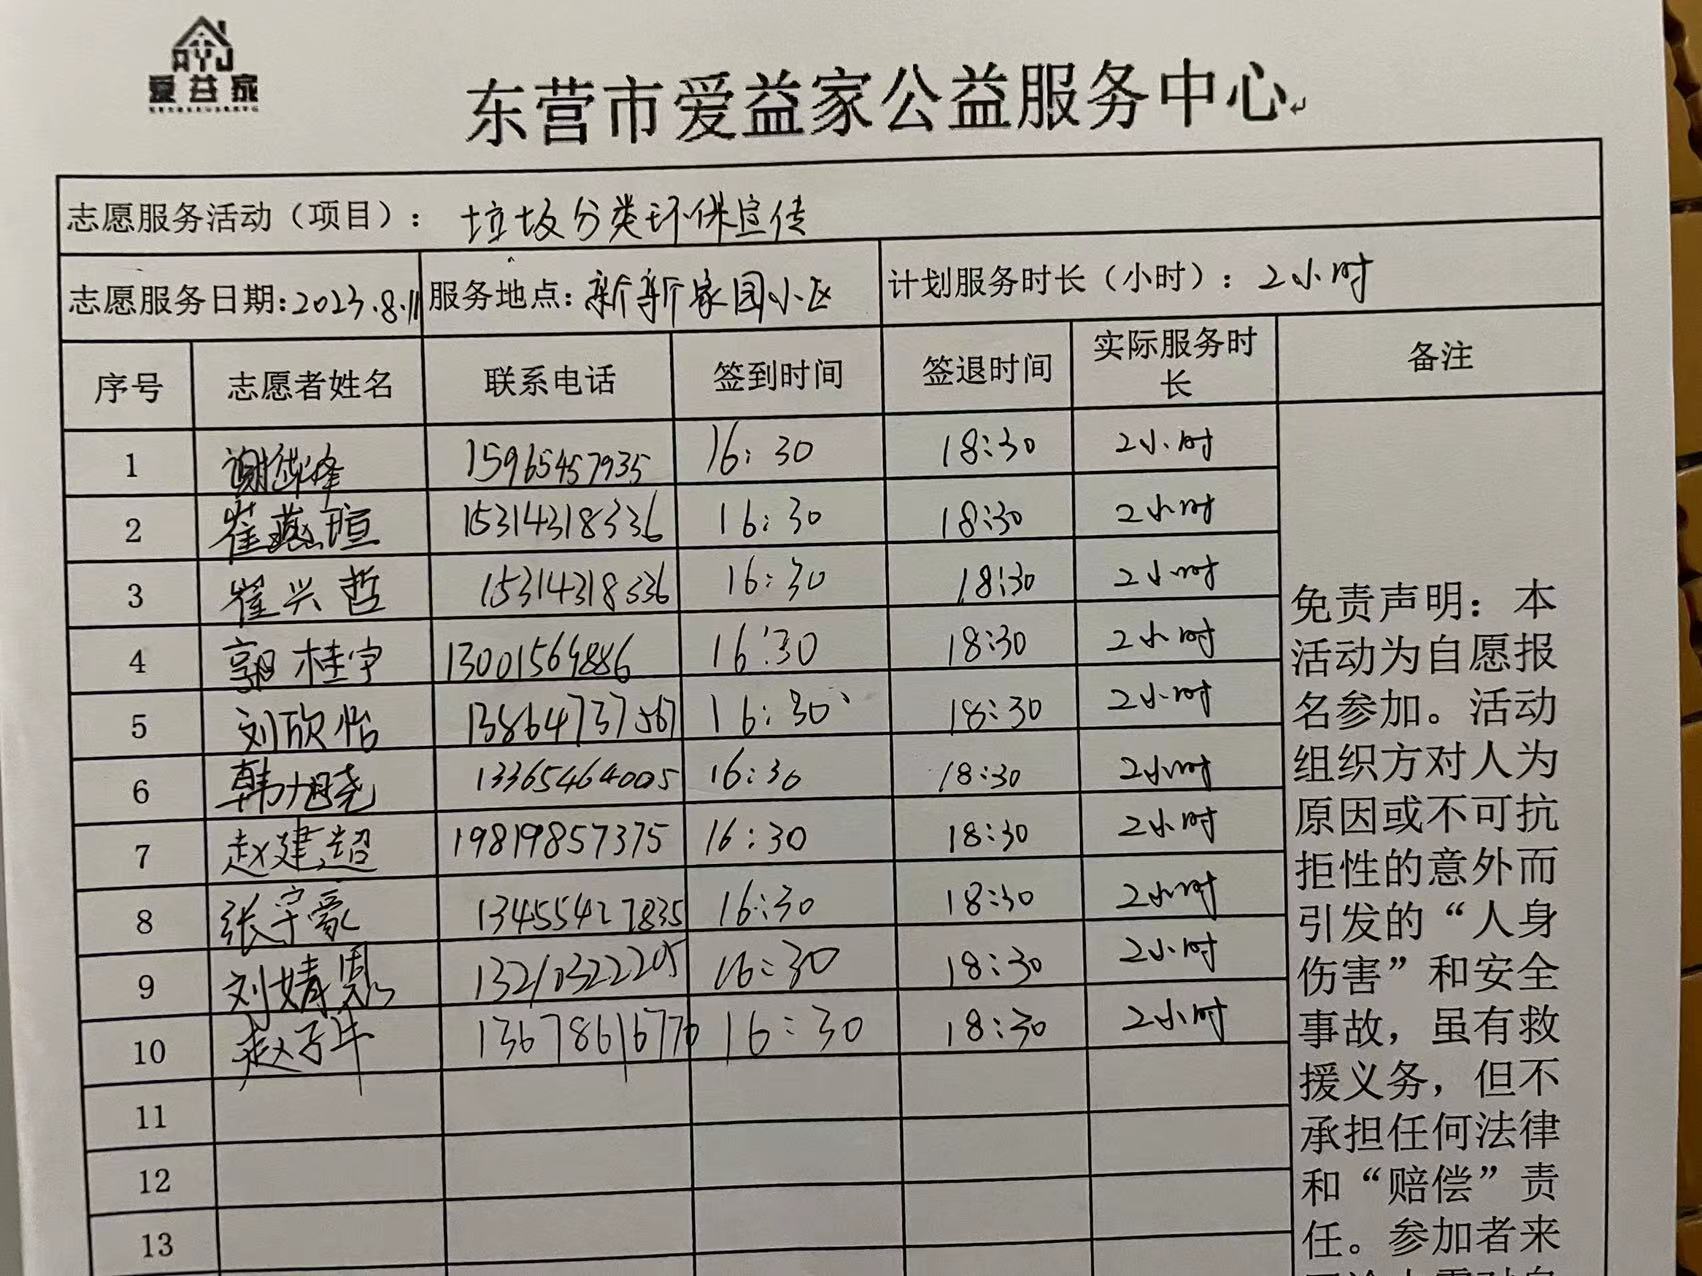 爱益家
东营市爱益家公益服务中心
志愿服务活动（项目）：垃圾分类环保宣传
志愿服务日期:2023.8.11 服务地点:新新家园小区 计划服务时长（小时）：2小时
序号 志愿者姓名 联系电话 签到时间 签退时间 实际服务时长 备注
1 15965457935 16:30 18:30 2小时
2 崔燕瑄 15314318336 16:30 18:30 2小时
3 崔兴哲 15314318336 16:30 18:30 2小时
4 郭桂宇 13001569886 16:30 18:30 2小时
5 刘欣怡 13864737567 16:30 18:30 2小时
6 韩旭尧 13365464005 16:30 18:30 2小时
7 赵建超 19819857375 16:30 18:30 2小时
8 张宇豪 13455427835 16:30 18:30 2小时
9 刘婧恩 13210322205 16:30 18:30 2小时
10 13678616770 16:30 18:30 2小时
11
12
13
免责声明：本
活动为自愿报
名参加。活动
组织方对人为
原因或不可抗
拒性的意外而
引发的“人身
伤害”和安全
事故，虽有救
援义务，但不
承担任何法律
和“赔偿”责
任。参加者来